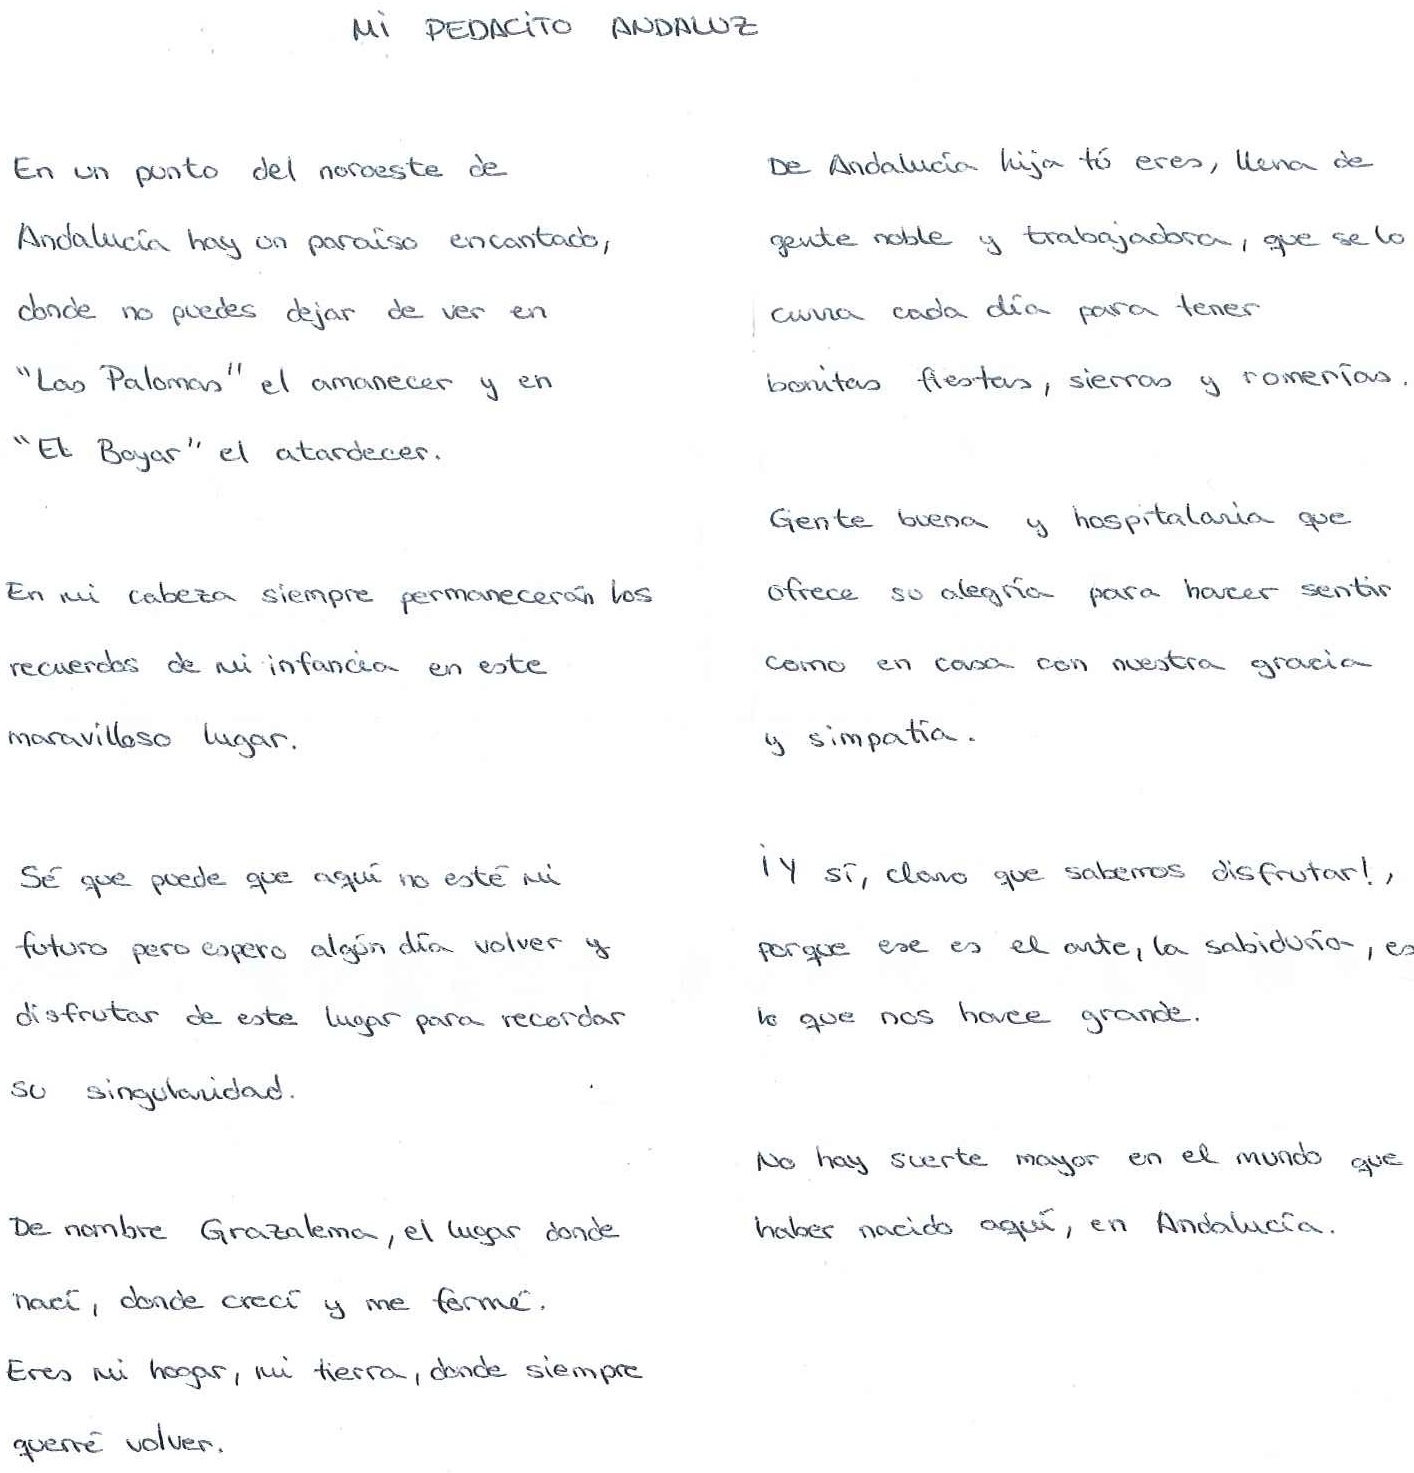 MI PEDACITO ANDALUZ
En un punto del noroeste de
Andalucía hay un paraíso encantado,
donde no puedes dejar de ver en
"Las Palomas" el amanecer y en
"El Boyar" el atardecer.
En mi cabeza siempre permanecerán los
recuerdos de mi infancia en este
maravilloso lugar.
Sé que puede que aquí no esté mi
futuro pero espero algún día volver y
disfrutar de este lugar para recordar
su singularidad.
De nombre Grazalema, el lugar donde
nací, donde crecí y me formé.
Eres mi hogar, mi tierra, donde siempre
querré volver.
De Andalucía hija tú eres, llena de
gente noble y trabajadora, que se lo
curra cada día para tener
bonitas fiestas, sierras y romerías.
Gente buena y hospitalaria que
ofrece su alegría para hacer sentir
como en casa con nuestra gracia
y simpatía.
¡Y sí, claro que sabemos disfrutar!,
porque ese es el arte, la sabiduría, es
lo que nos hace grande.
No hay suerte mayor en el mundo que
haber nacido aquí, en Andalucía.